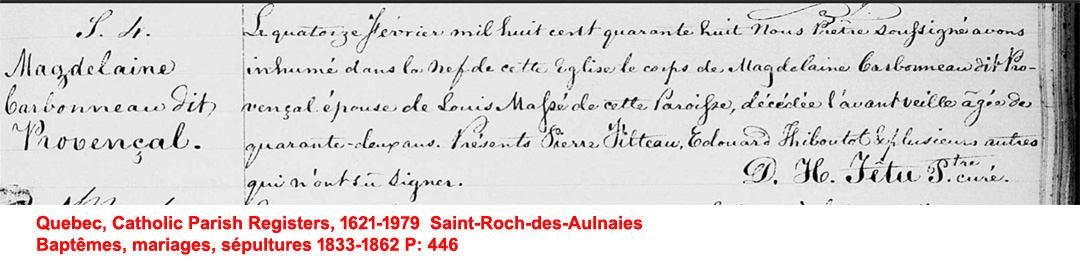 S. 4.
Magdelaine
Carbonneau dit
Provençal.
Le quatorze Février mil huit cent quarante huit Nous Prêtre soussigné avons
inhumé dans la Nef de cette Eglise le corps de Magdelaine Carbonneau dit Pro-
vençal épouse de Louis Massé de cette Paroisse, décédée l'avant veille âgée de
quarante-deux ans. Présents Pierre Pitteau, Edouard Thiboutot & plusieurs autres
qui n'ont sû signer.
D. H. Têtu Ptre curé.
Quebec, Catholic Parish Registers, 1621-1979 Saint-Roch-des-Aulnaies
Baptêmes, mariages, sépultures 1833-1862 P: 446